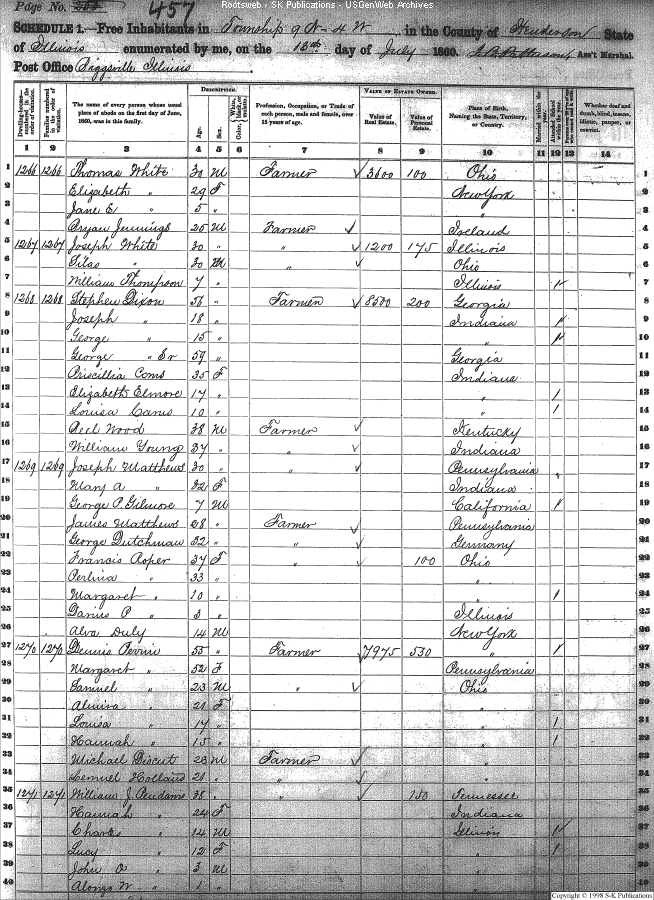 Rootsweb - SK Publications - USGenWeb Archives
Page No. 457
SCHEDULE 1.—Free Inhabitants in Township 9 N - 4 W in the County of Henderson State
of Illinois enumerated by me, on the 13th day of July 1860. Ass't Marshal.
Post Office Biggsville Illinois
DESCRIPTION. VALUE OF ESTATE OWNED.
Dwelling-houses—numbered in the order of visitation. Families numbered in the order of visitation. The name of every person whose usual place of abode on the first day of June, 1860, was in this family. Age. Sex. Color, Profession, Occupation, or Trade of each person, male and female, over 15 years of age. Value of Real Estate. Value of Personal Estate. Place of Birth, Naming the State, Territory, or Country. Married within the year. Whether deaf and dumb, blind, insane, idiotic, pauper, or convict.
1 2 3 4 5 6 7 8 9 10 11 12 13 14
1 1266 1266 Thomas White 30 M Farmer 3600 100 Ohio 1
2 Elizabeth " 29 F New York 2
3 Jane E " 5 " " 3
4 Bryan Jennings 25 M Farmer Ireland 4
5 1267 1267 Joseph White 30 " " 1200 175 Illinois 5
6 Silas " 30 M " Ohio 6
7 William Thompson 7 " Illinois 7
8 1268 1268 Stephen Dixon 56 " Farmer 8500 200 Georgia 8
9 Joseph " 18 " Indiana 9
10 George " 15 " " 10
11 George " Sr 59 " Georgia 11
12 Priscillia Coms 35 F Indiana 12
13 Elizabeth Elmore 17 " " 1 13
14 Louisa 10 " " 1 14
15 Wood 38 M Farmer Kentucky 15
16 William Young 37 " " Indiana 16
17 1269 1269 Joseph Matthews 30 " " Pennsylvania 17
18 Mary A " 32 F Indiana 18
19 George P. Gilmore 7 M California 19
20 James Matthews 28 " Farmer Pennsylvania 20
21 George Dutchman 32 " " Germany 21
22 Francis Roper 37 F " 100 Ohio 22
23 Perlina " 33 " " 23
24 Margaret " 10 " " 1 24
25 Darius P " 3 " Illinois 25
26 Alva Duly 14 M New York 26
27 1270 1270 Dennis 55 " Farmer 7975 530 " 1 27
28 Margaret " 52 F Pennsylvania 28
29 Samuel " 23 M " Ohio 29
30 Almira " 21 F " 30
31 Louisa " 17 " " 1 31
32 Hannah " 15 " " 1 32
33 Michael 23 M Farmer " 33
34 Lemuel Holland 21 " " " 34
35 1271 1271 William J. 38 " " 150 Tennessee 35
36 Hannah " 24 F Indiana 36
37 Charles " 14 M Illinois 37
38 Lucy " 12 F " 1 38
39 John " 3 M " 39
40 Alonzo W " 1 " " 40
Copyright © 1998 S-K Publications